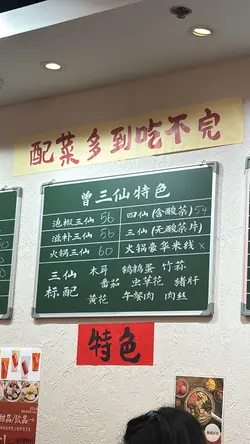 配菜多到吃不完
曾三仙特色
泡椒三仙 56 四仙(含酸菜) 54
滋补三仙 55 三仙(无酸菜片)
火锅三仙 60 火锅豪华米线 x
三仙 木耳 鹌鹑蛋 竹荪
标配 番茄 虫草花 猪肝
黄花 午餐肉 肉丝
特色